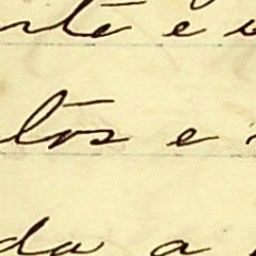 rte e
tos e
da a